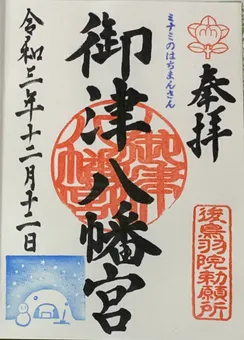 奉拝
ミナミのはちまんさん
御津八幡宮
令和三年十二月十二日
後鳥羽院勅願所